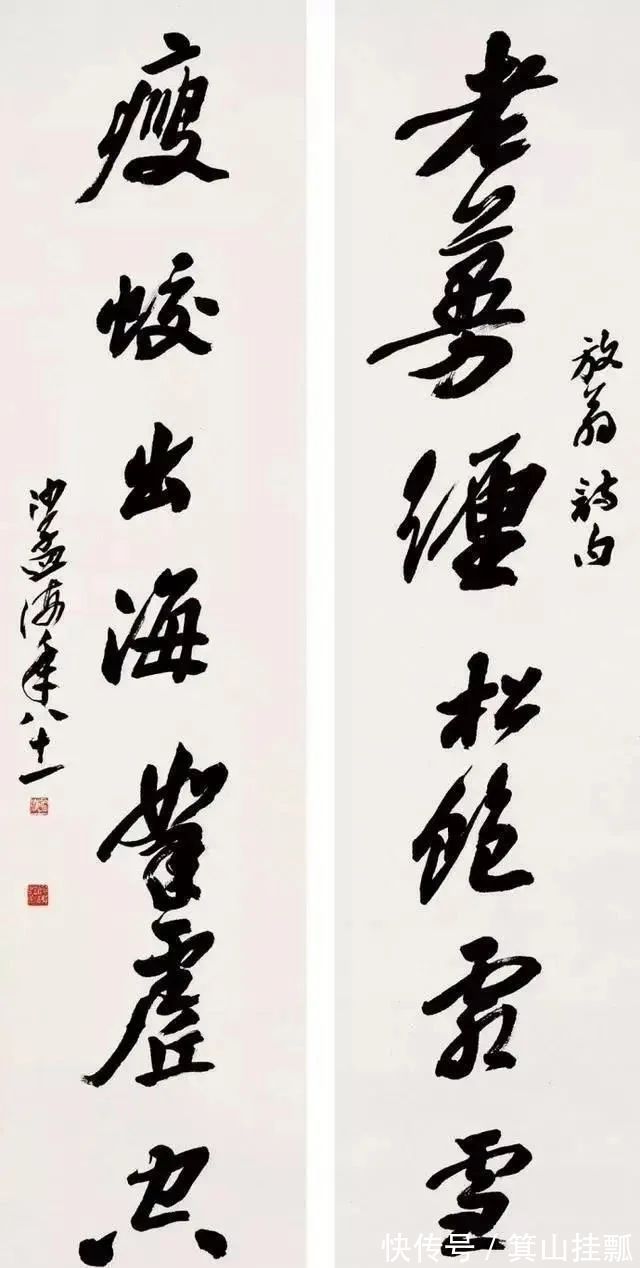 放翁詩句
老蔓纏松飽霜雪
瘦蛟出海挐虛空
沙孟海年八十一
快传号 / 箕山挂瓢